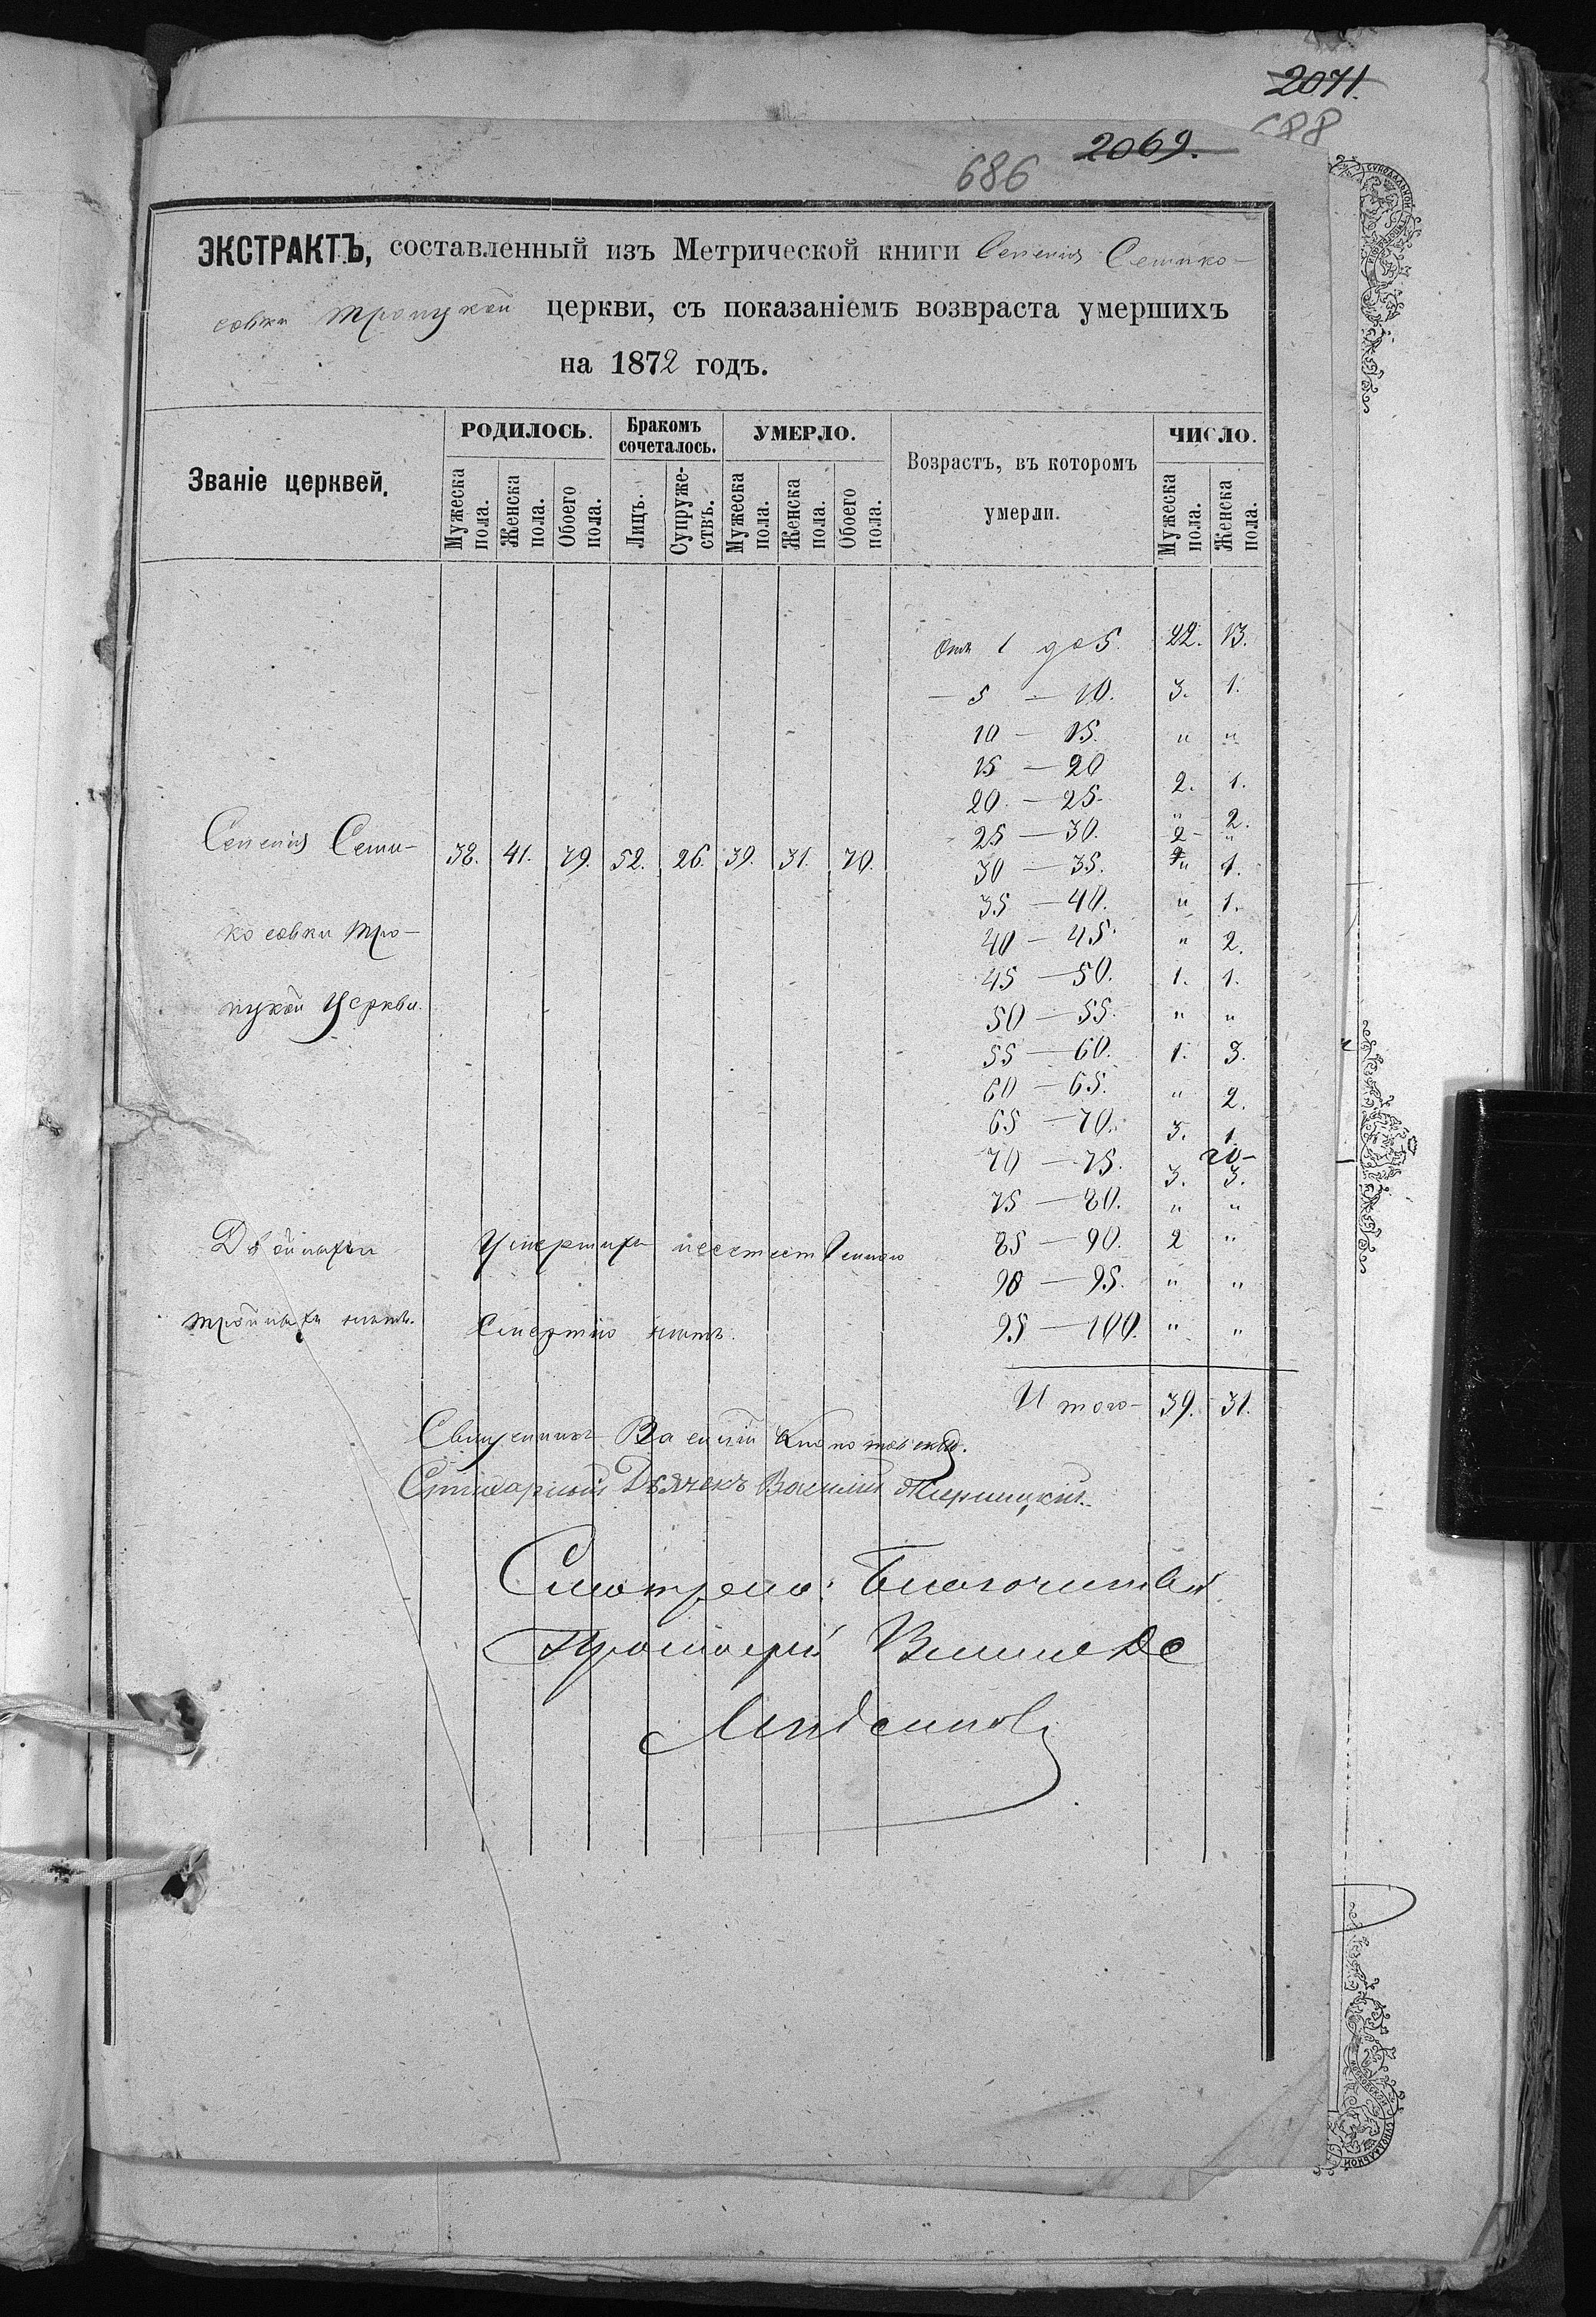 2071.
688
2069.
686
ЭКСТРАКТЪ, составленный изъ Метрической книги Селенія Семико-
совки Троицкой церкви, съ показаніемъ возвраста умершихъ
на 1872 годъ.
Званіе церквей.
РОДИЛОСЬ.
Бракомъ сочеталось.
УМЕРЛО.
Возрастъ, въ которомъ
умерли.
ЧИСЛО.
Мужеска пола.
Женска пола.
Обоего пола.
Лицъ.
Супружествъ.
Мужеска пола.
Женска пола.
Обоего пола.
Мужеска пола.
Женска пола.
Отъ 1 до 5. 22. 13.
— 5 — 10. 3. 1.
10 — 15. " "
15 — 20 2. 1.
20 — 25. " 2.
25 — 30. 2 "
Селенія Семи- 38. 41. 79. 52. 26. 39. 31. 70.
30 — 35. " 1.
35 — 40. " 1.
косовки Тро- 40 — 45. " 2.
45 — 50. 1. 1.
ицкой Церкви. 50 — 55. " "
55 — 60. 1. 3.
60 — 65. " 2.
65 — 70. 3. 1.
70 — 75. 3. 3.
75 — 80. " "
Двойнахъ Умершихъ неестественною 85 — 90. 2 "
90 — 95. " "
тройнахъ нѣтъ. Смертію нѣтъ. 95 — 100. " "
Итого — 39. 31.
Священникъ Василій
Дьячекъ Василій
Смотрелъ: Благочинный
Протоіерей